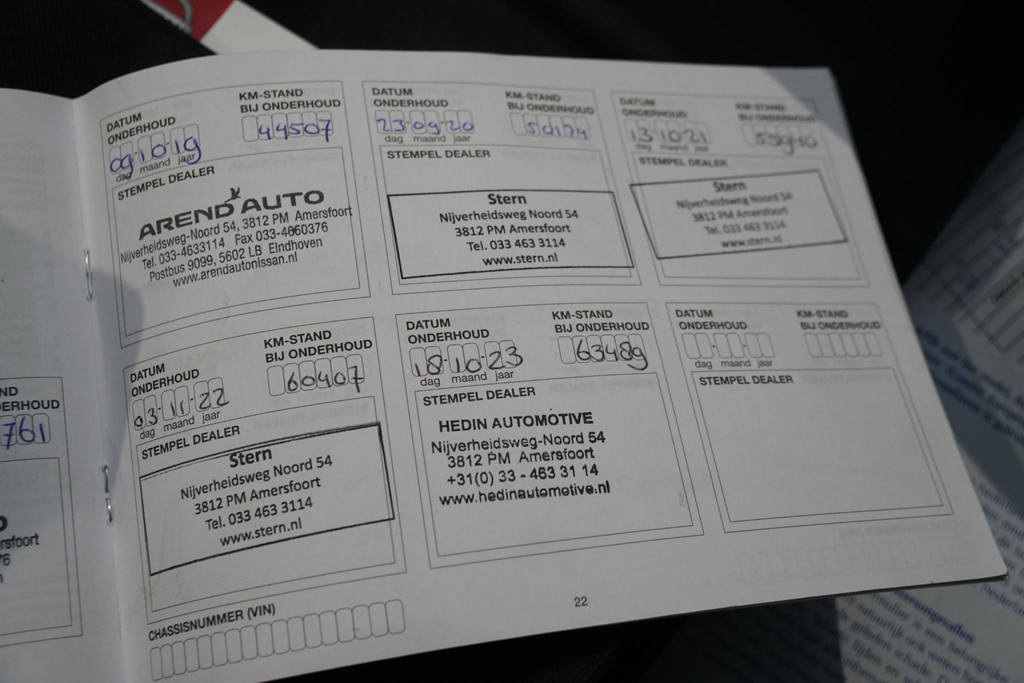 DATUM
ONDERHOUD
KM-STAND
BIJ ONDERHOUD
09-10-19
44507
dag maand jaar
STEMPEL DEALER
AREND AUTO
Nijverheidsweg-Noord 54, 3812 PM Amersfoort
Tel. 033-4633114 Fax 033-4660376
Postbus 9099, 5602 LB Eindhoven
www.arendautonissan.nl
DATUM
ONDERHOUD
KM-STAND
BIJ ONDERHOUD
23-09-20
50174
dag maand jaar
STEMPEL DEALER
Stern
Nijverheidsweg Noord 54
3812 PM Amersfoort
Tel. 033 463 3114
www.stern.nl
DATUM
ONDERHOUD
KM-STAND
BIJ ONDERHOUD
13-10-21
dag maand jaar
STEMPEL DEALER
Stern
Nijverheidsweg Noord 54
3812 PM Amersfoort
Tel. 033 463 3114
www.stern.nl
DATUM
ONDERHOUD
KM-STAND
BIJ ONDERHOUD
03-11-22
60407
dag maand jaar
STEMPEL DEALER
Stern
Nijverheidsweg Noord 54
3812 PM Amersfoort
Tel. 033 463 3114
www.stern.nl
DATUM
ONDERHOUD
KM-STAND
BIJ ONDERHOUD
18-10-23
63489
dag maand jaar
STEMPEL DEALER
HEDIN AUTOMOTIVE
Nijverheidsweg-Noord 54
3812 PM Amersfoort
+31(0) 33 - 463 31 14
www.hedinautomotive.nl
DATUM
ONDERHOUD
KM-STAND
BIJ ONDERHOUD
dag maand jaar
STEMPEL DEALER
CHASSISNUMMER (VIN)
22
ND
ERHOUD
761
rsfoort
76